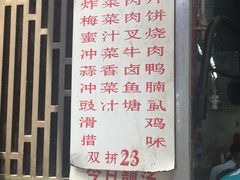 炸菜肉片
梅菜肉饼
蜜汁叉烧
冲菜牛肉
蒜香卤鸭
冲菜鱼腩
豉汁塘虱
滑鸡
措味
双拼23
今日靓汤